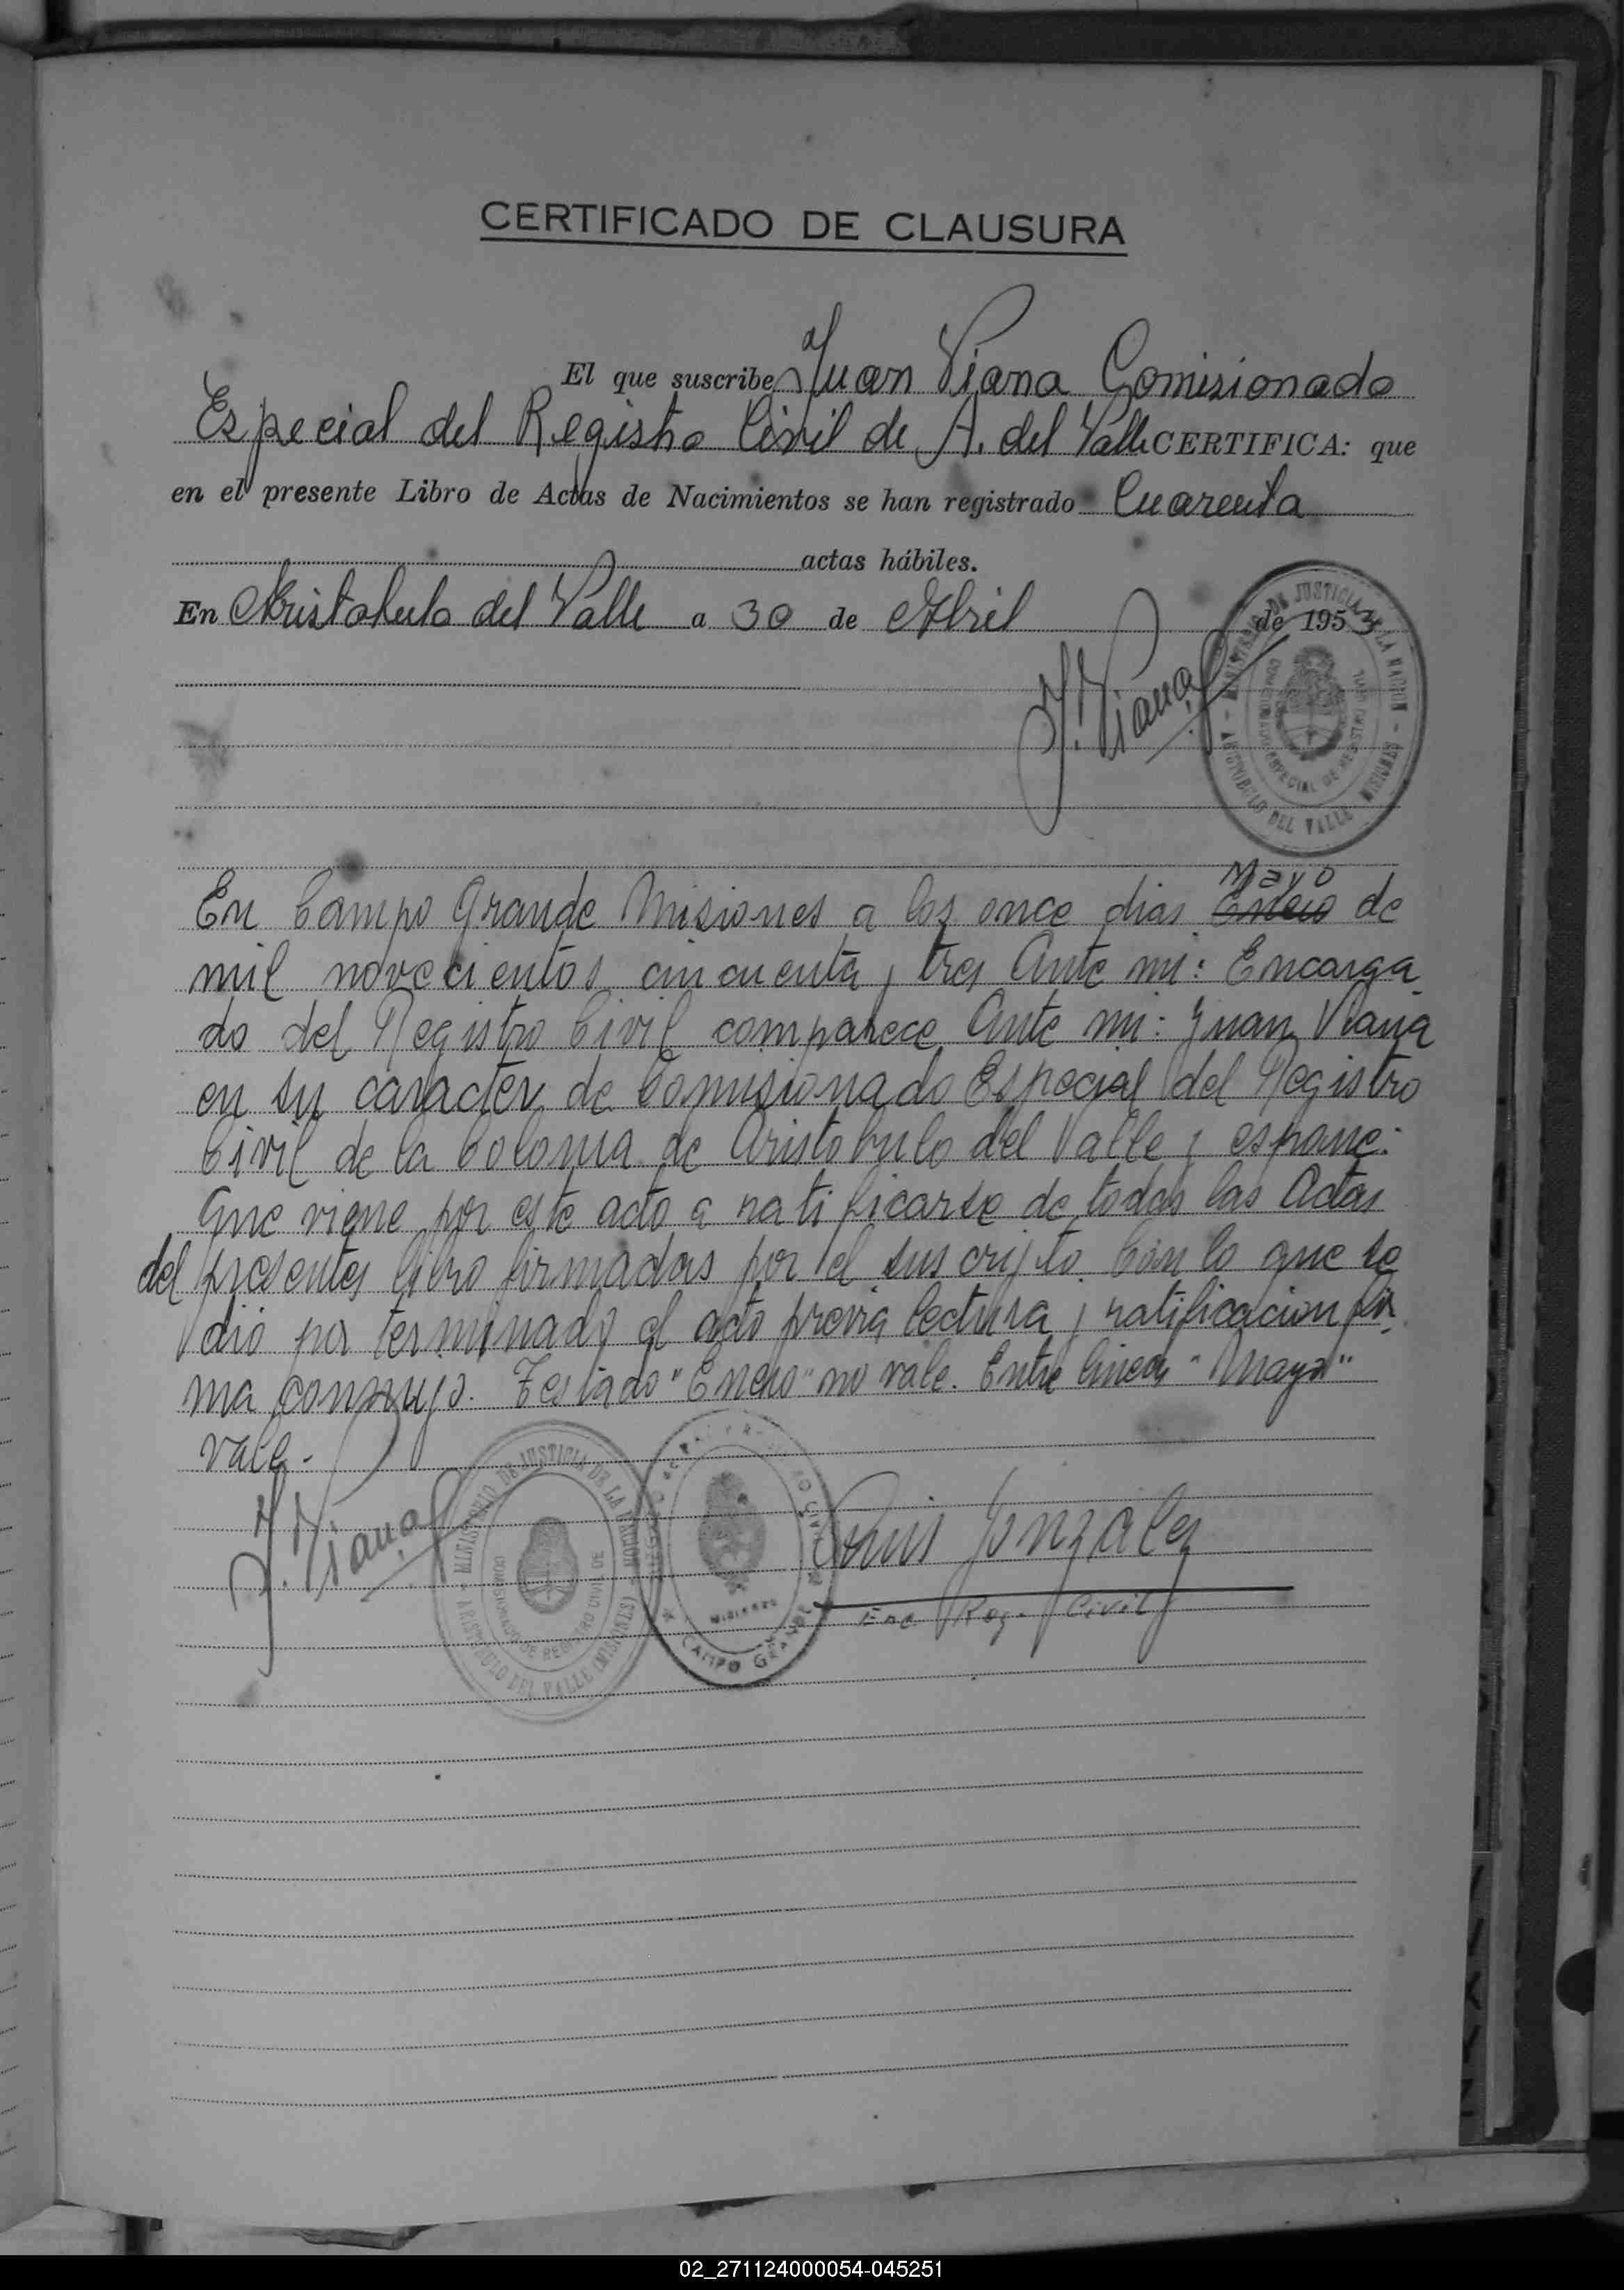 CERTIFICADO DE CLAUSURA
El que suscribe Juan Viana Comisionado
Especial del Registro Civil de A. del Valle CERTIFICA: que
en el presente Libro de Actas de Nacimientos se han registrado Cuarenta
actas hábiles.
En Aristobulo del Valle a 30 de Abril de 1953
J. Viana
MINISTERIO DE JUSTICIA DE LA NACION - MISIONES
ARISTOBULO DEL VALLE
ESPECIAL DE REGISTRO CIVIL
Mayo
En Campo Grande Misiones a los once dias Enero de
mil novecientos cincuenta y tres Ante mi: Encarga
do del Registro Civil comparece Ante mi: Juan Viana
en su caracter de Comisionado Especial del Registro
Civil de la Colonia de Aristobulo del Valle y espone:
Que viene por este acto a ratificarse de todas las Actas
del presentes libro firmadas por el suscripto. Con lo que se
dió por terminado el acto previa lectura y ratificacion fir
ma conmigo. Testado "Enero" no vale. Entre lineas "Mayo"
vale.-
J. Viana
MINISTERIO DE JUSTICIA DE LA NACION
ARISTOBULO DEL VALLE (MISIONES)
DE REGISTRO CIVIL DE
MISIONES
CAMPO GRANDE
Luis Gonzalez
Enc Reg. Civil
02_271124000054-045251